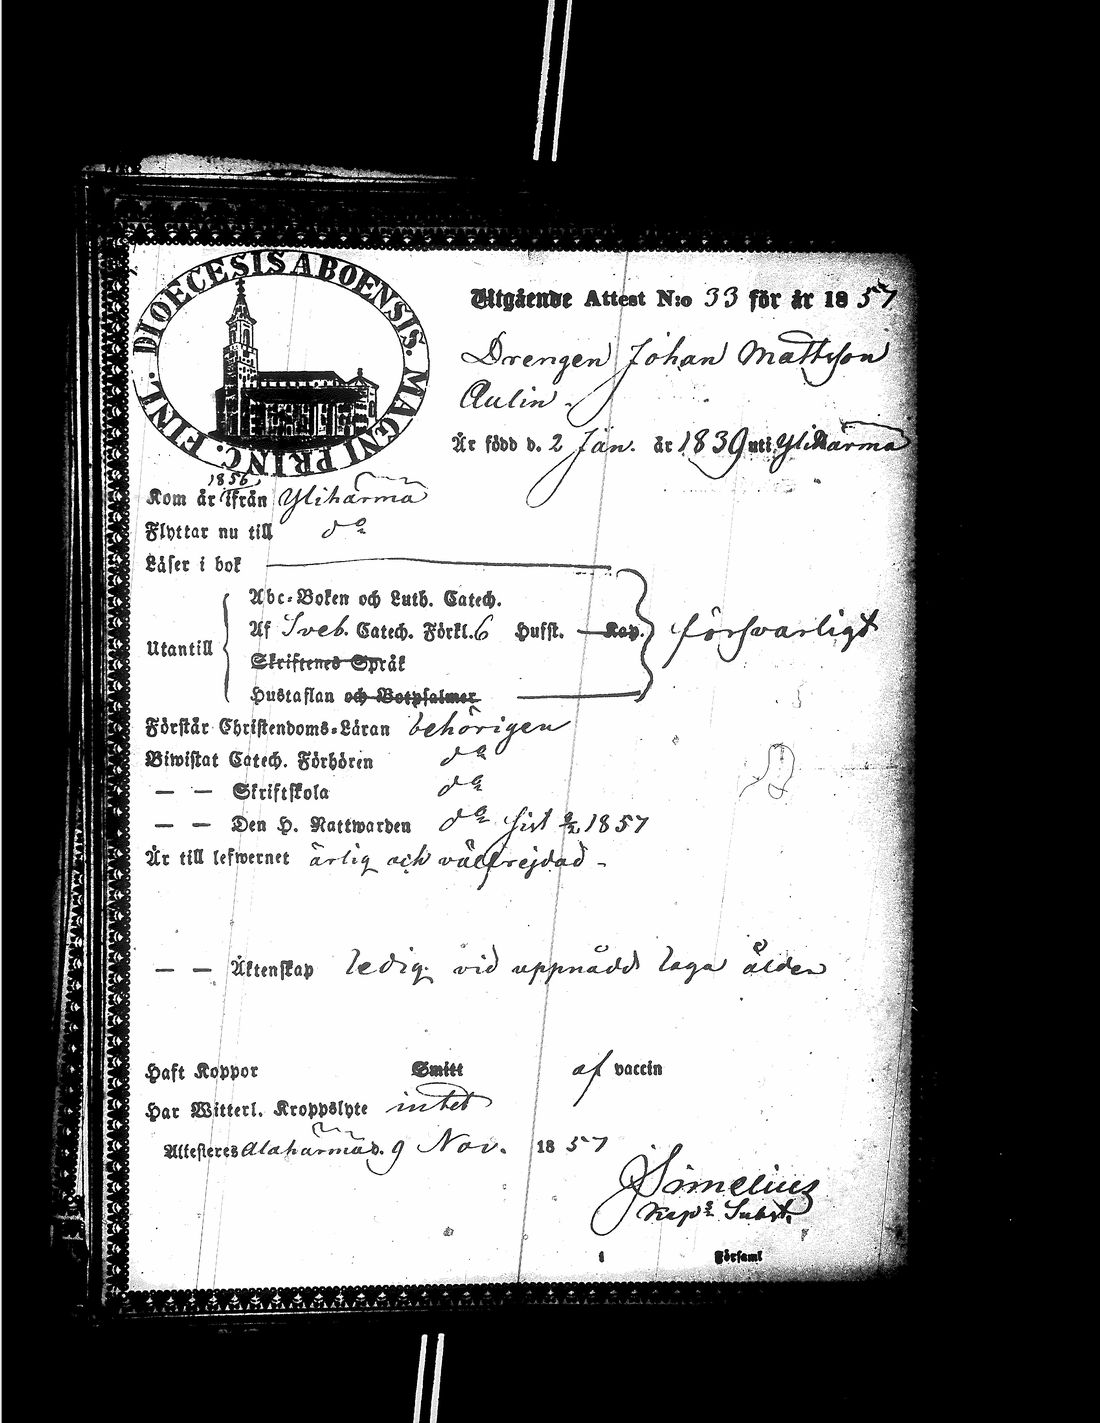 DIOECESIS ABOENSIS. MAGNI PRINC. FINL.
Utgående Attest N:o 33 för år 1857
Drengen Johan Mattsson
Aulin.
Är född d. 2 Jan. år 1839 uti Ylihärmä
1856
Kom år ifrån Ylihärmä
Flyttar nu till do
Läser i bok
Abc-Boken och Luth. Catech.
Utantill
Af Sveb. Catech. Förkl. 6 Husst. Kap. försvarligt
Skriftenes Språk
Hustaflan och Botpsalmer
Förstår Christendoms-Läran behörigen
Biwistat Catech. Förhören do
— — Skriftskola do
— — Den H. Nattwarden do sist 1857
Är till lefwernet ärlig och välfrejdad -
— — Äktenskap ledig vid uppnådd laga ålder
Haft Koppor Smitt af vaccin
Har Witterl. Kroppslyte intet
Attesteres Alahärmä d. 9 Nov. 1857
JSimelius
Kaps Subst.
i Församl